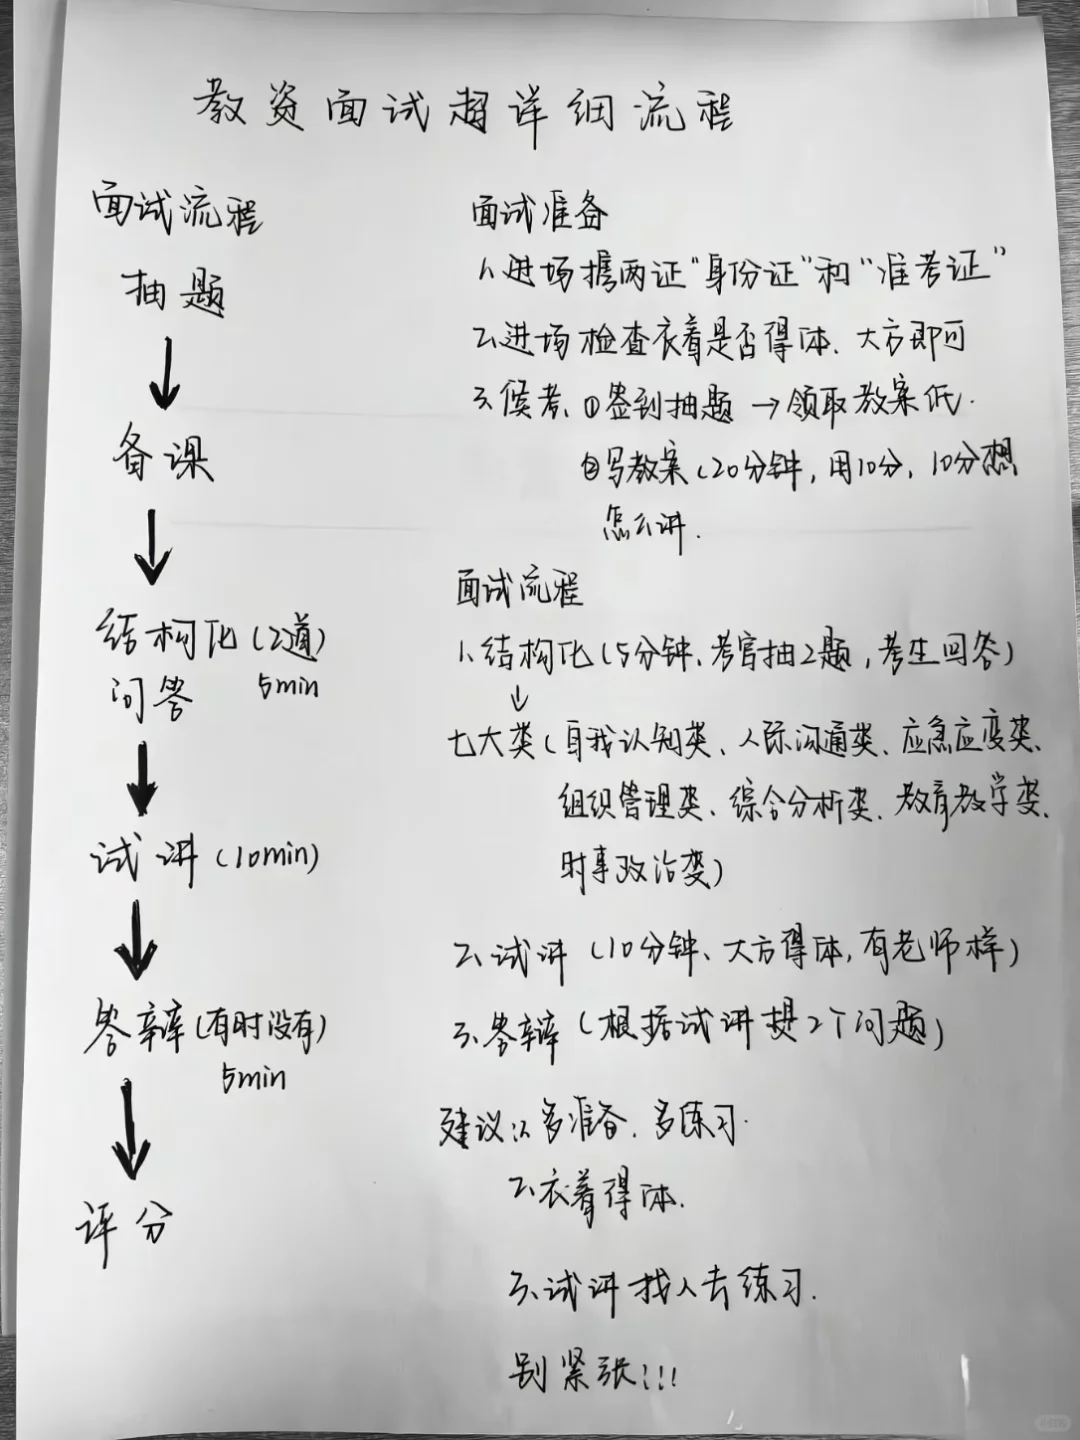 教资面试超详细流程
面试流程
抽题
备课
结构化(2道)
问答 5min
试讲(10min)
答辩(有时没有)
5min
评分
面试准备
1、进场携两证“身份证”和“准考证”
2、进场检查衣着是否得体、大方即可
3、候考、①签到抽题→领取教案纸.
②写教案(20分钟,用10分,10分想
怎么讲.
面试流程
1、结构化(5分钟、考官抽2题,考生回答)
↓
七大类(自我认知类、人际沟通类、应急应变类、
组织管理类、综合分析类、教育教学类、
时事政治类)
2、试讲(10分钟、大方得体,有老师样)
3、答辩(根据试讲提2个问题)
建议:1、多准备、多练习.
2、衣着得体.
3、试讲找人去练习.
别紧张!!!